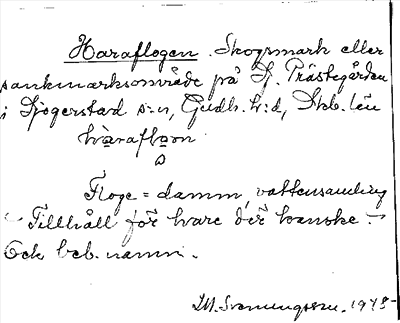 Haraflogen. Skogsmark eller
sankmarksområde på S. Prästegården
i Sjogerstad s:n, Gudh. h:d, Skb. län
haraflon
Floge = damm, vattensamling
Tillhåll för hare der kanske.
Ock beb. namn.